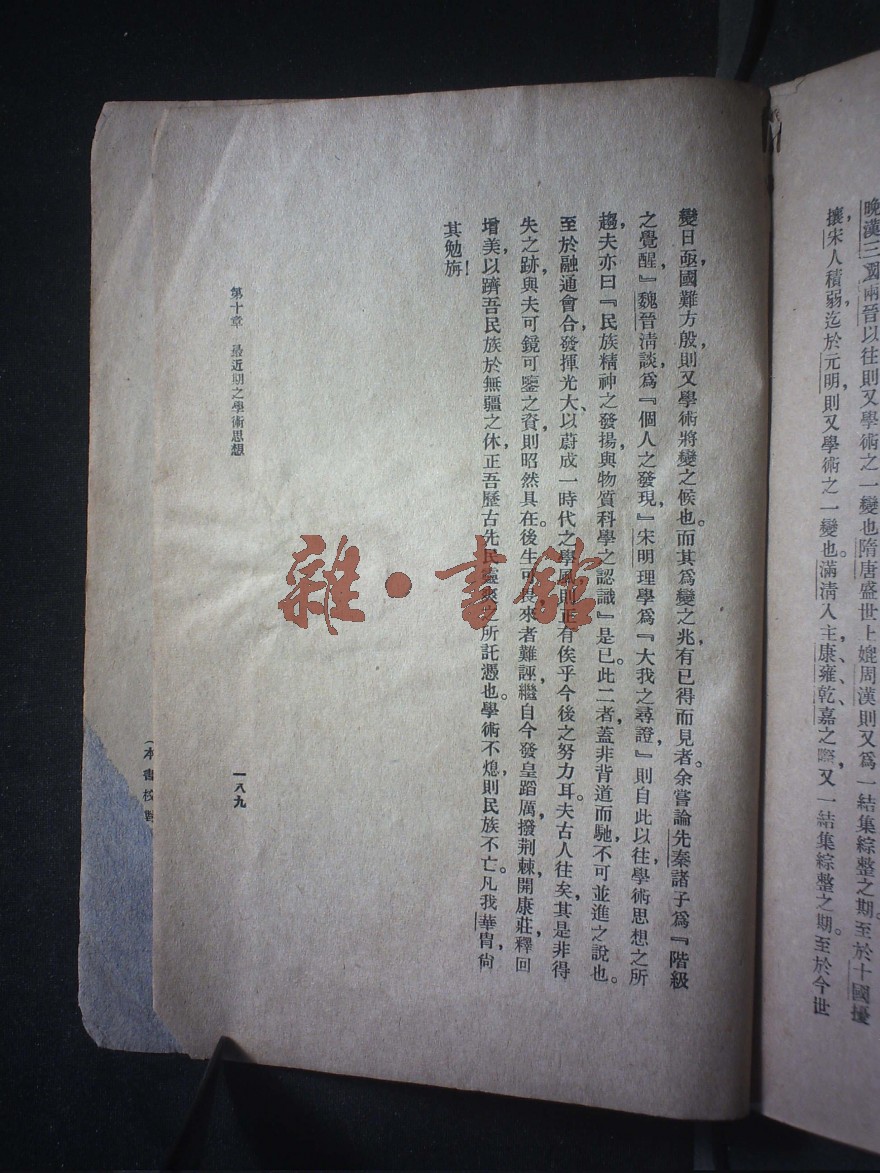 晚漢三國兩晉以往則又學術之一變也隋唐盛世上媲周漢則又爲一結集綜整之期。至於十國擾
攘，宋人積弱，迄於元明，則又學術之一變也。滿清入主，康、雍、乾、嘉之際，又一結集綜整之期。至於今世
變日亟，國難方殷，則又學術將變之候也。而其爲變之兆，有已得而見者。余嘗論先秦諸子爲『階級
之覺醒』，魏晉清談爲『個人之發現』，宋明理學爲『大我之尋證』，則自此以往，學術思想之所
趨，夫亦曰『民族精神之發揚，與物質科學之認識』是已。此二者，蓋非背道而馳，不可並進之說也。
至於融通會合，發揮光大，以蔚成一時代之學風，則正有俟乎今後之努力耳。夫古人往矣，其是非得
失之跡，與夫可鏡可鑒之資，則昭然具在。後生可畏，來者難誣，繼自今發皇蹈厲，撥荆棘，開康莊，釋回
增美，以躋吾民族於無疆之休，正吾歷古先民靈爽之所託憑也。學術不熄，則民族不亡。凡我華胄，尙
其勉旃！
第十章　最近期之學術思想
一八九
（本書校對
雜·書館